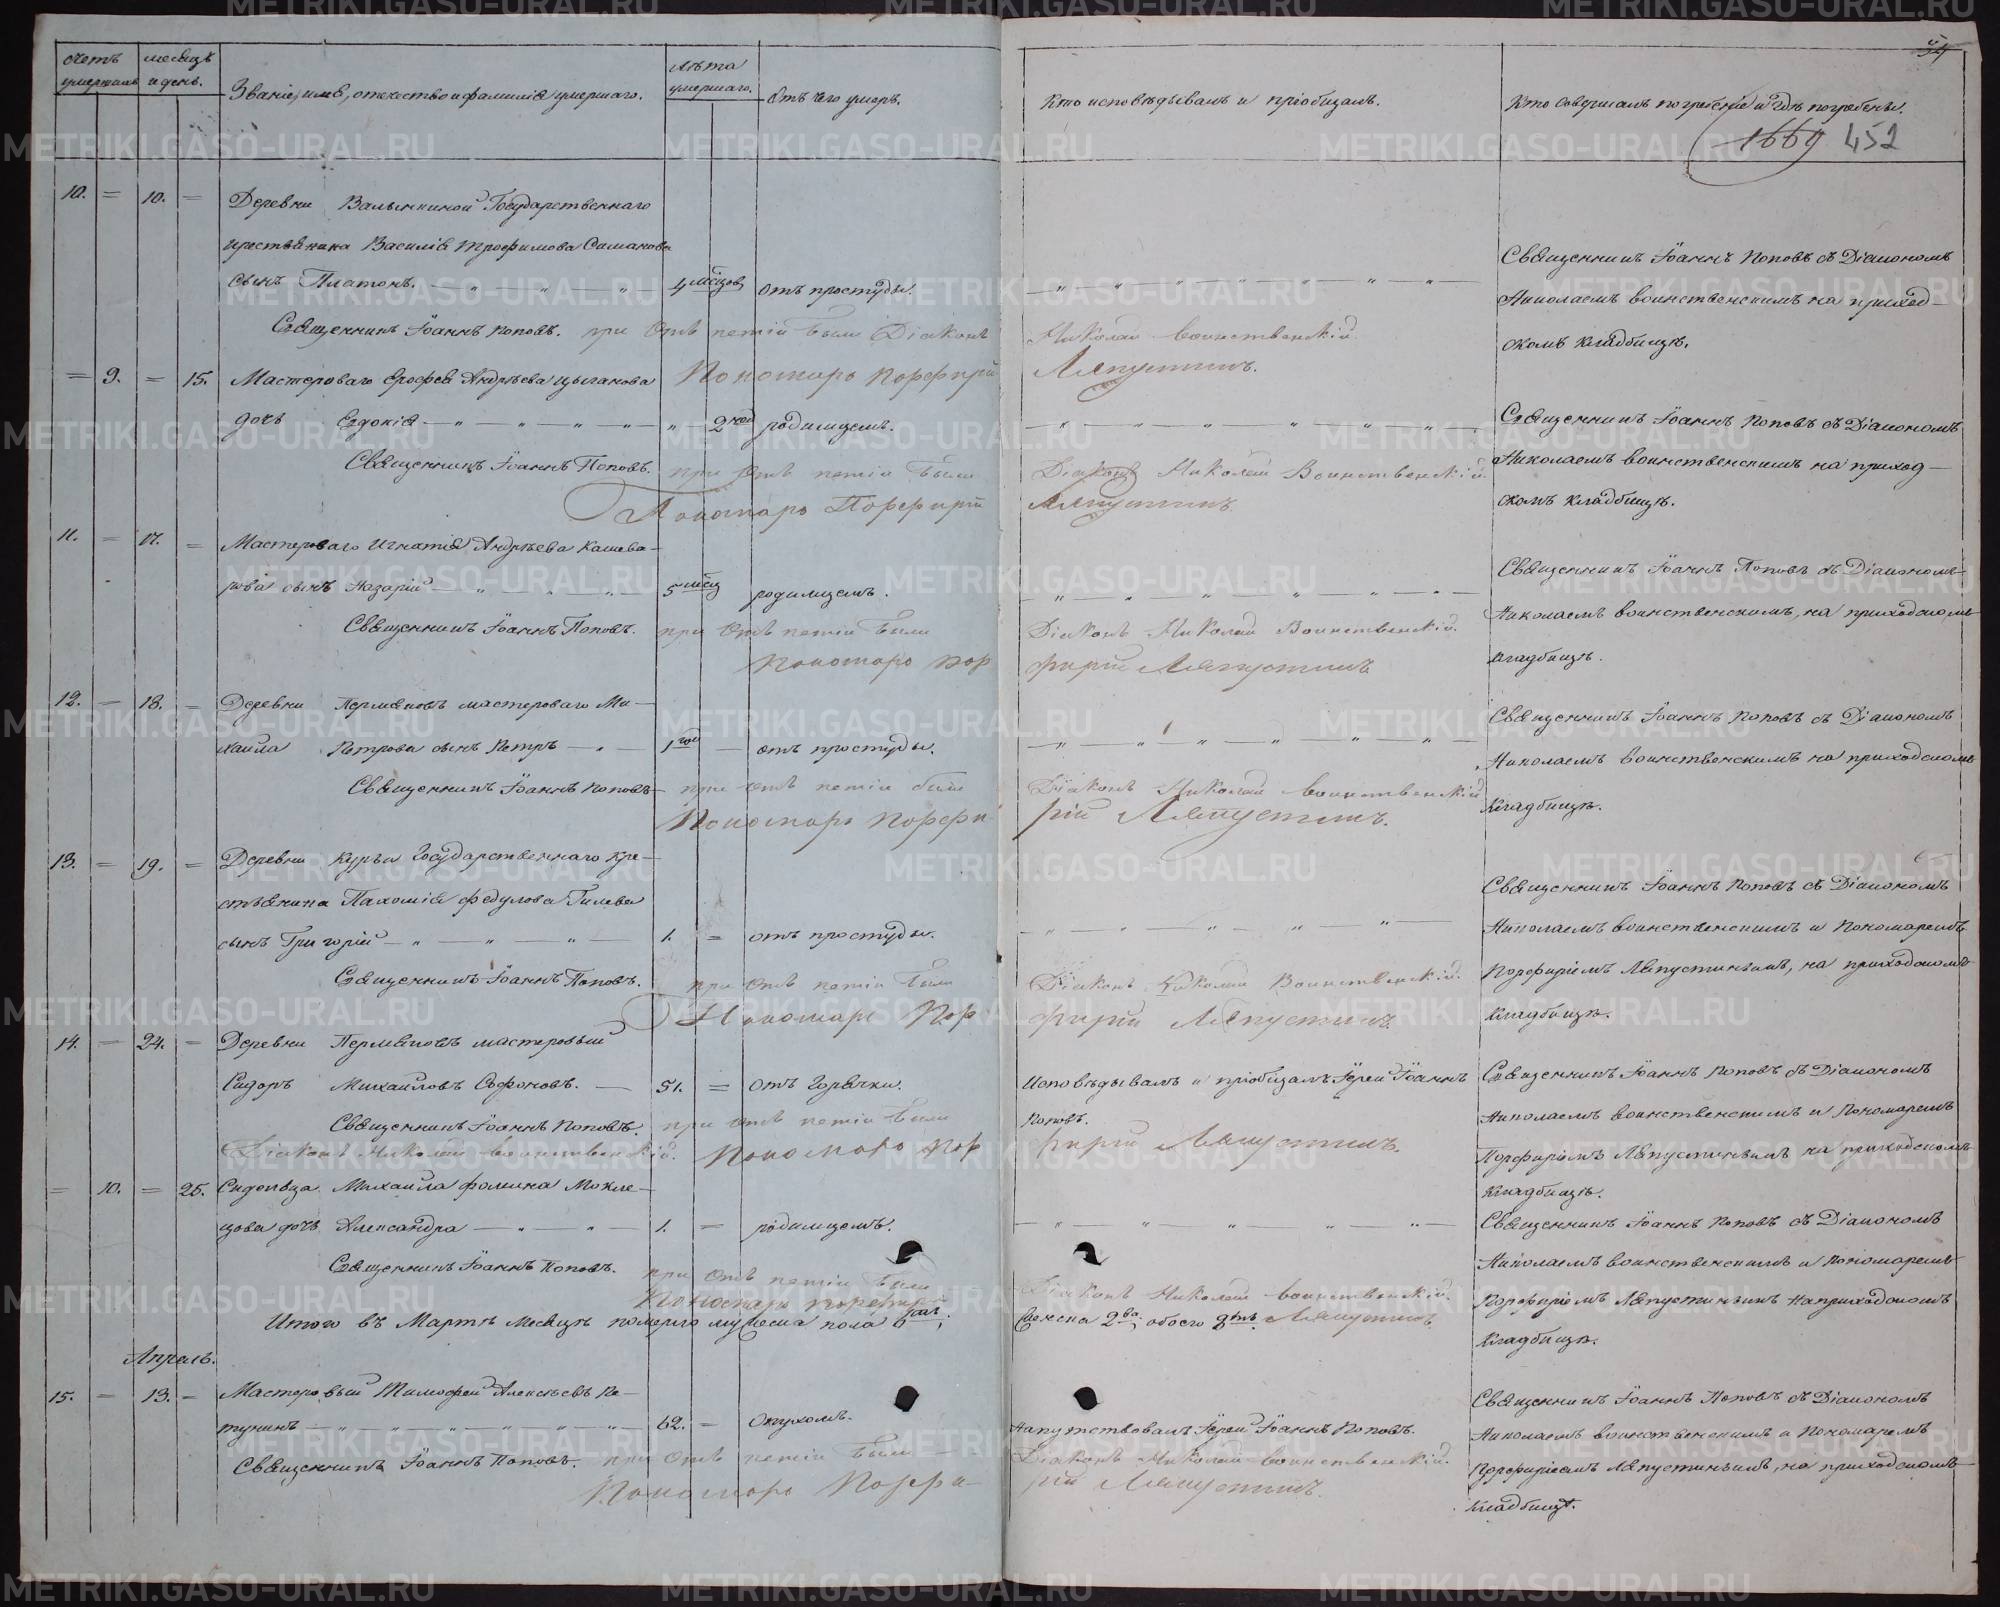 счетъ умершихъ
мѣсяцъ и день.
Званіе, имя, отчество и фамилія умершаго.
Лѣта умершаго.
Отъ чего умеръ.
Кто исповѣдывалъ и пріобщалъ.
Кто совершалъ погребеніе и гдѣ погребены.
1669 452
10. 10.
Деревни Валышкиной Государственнаго
крестьянина Василія Трофимова Симанова
сынъ Платонъ. 4 мѣсяцовъ отъ простуды.
Священникъ Іоаннъ Поповъ съ Діакономъ
Николаемъ Воинственскимъ на приход-
скомъ кладбищѣ.
Священникъ Іоаннъ Поповъ. при отпетіи были Діаконъ Николай Воинственскій
Пономарь Порфирій Ляпустинъ.
9. 15. Мастероваго Ерофея Андрѣева Цыганова
дочь Евдокія 2 год родимцемъ.
Священникъ Іоаннъ Поповъ съ Діакономъ
Николаемъ Воинственскимъ на приход-
скомъ кладбищѣ.
Священникъ Іоаннъ Поповъ. при отпетіи были Діаконъ Николай Воинственскій
Пономарь Порфирій Ляпустинъ.
11. 17.
Мастероваго Игнатія Андрѣева Кашева-
рова сынъ Назарій 5 мѣсяц родимцемъ.
Священникъ Іоаннъ Поповъ съ Діакономъ
Николаемъ Воинственскимъ, на приходскомъ
кладбищѣ.
Священникъ Іоаннъ Поповъ. при отпетіи были Діаконъ Николай Воинственскій.
Пономарь Порфирій Ляпустинъ
12. 18. Деревни Пермяковъ мастероваго Ми-
хаила Петрова сынъ Петръ 1 год отъ простуды.
Священникъ Іоаннъ Поповъ съ Діакономъ
Николаемъ Воинственскимъ на приходскомъ
кладбищѣ.
Священникъ Іоаннъ Поповъ при отпетіи были Діаконъ Николай Воинственскій
Пономарь Порфирій Ляпустинъ.
13. 19. Деревни Курьи Государственнаго кре-
стьянина Пахомія Федулова Гилева
сынъ Григорій 1. отъ простуды.
Священникъ Іоаннъ Поповъ съ Діакономъ
Николаемъ Воинственскимъ и Пономаремъ
Порфиріемъ Ляпустинымъ, на приходскомъ
кладбищѣ.
Священникъ Іоаннъ Поповъ. при отпетіи были Діаконъ Николай Воинственскій.
Пономарь Порфирій Ляпустинъ
14. 24. Деревни Пермяковъ мастеровый
Сидоръ Михайловъ Софоновъ. 51. отъ горячки. Исповѣдывалъ и пріобщалъ Іерей Іоаннъ
Поповъ.
Священникъ Іоаннъ Поповъ съ Діакономъ
Николаемъ Воинственскимъ и Пономаремъ
Порфиріемъ Ляпустинымъ на приходскомъ
кладбищѣ.
Священникъ Іоаннъ Поповъ. при отпетіи были
Діаконъ Николай Воинственскій. Пономарь Порфирій Ляпустинъ.
10. 25. Сидельца Михаила Фомина Мокле-
цова дочь Александра 1. родимцемъ.
Священникъ Іоаннъ Поповъ съ Діакономъ
Николаемъ Воинственскимъ и Пономаремъ
Порфиріемъ Ляпустинымъ на приходскомъ
кладбищѣ.
Священникъ Іоаннъ Поповъ. при отпетіи были Діаконъ Николай Воинственскій.
Пономарь Порфирій Ляпустинъ
Итого въ Мартѣ мѣсяцѣ померло мужеска пола 6, женска 2ва, обоего 8мь.
Апрель.
15. 13. Мастеровый Тимофей Алексѣевъ Пе-
тунинъ 62. опухомъ. Напутствовалъ Іерей Іоаннъ Поповъ.
Священникъ Іоаннъ Поповъ съ Діакономъ
Николаемъ Воинственскимъ и Пономаремъ
Порфиріемъ Ляпустинымъ, на приходскомъ
кладбищѣ.
Священникъ Іоаннъ Поповъ. при отпетіи были Діаконъ Николай Воинственскій.
Пономарь Порфирій Ляпустинъ.
METRIKI.GASO-URAL.RU